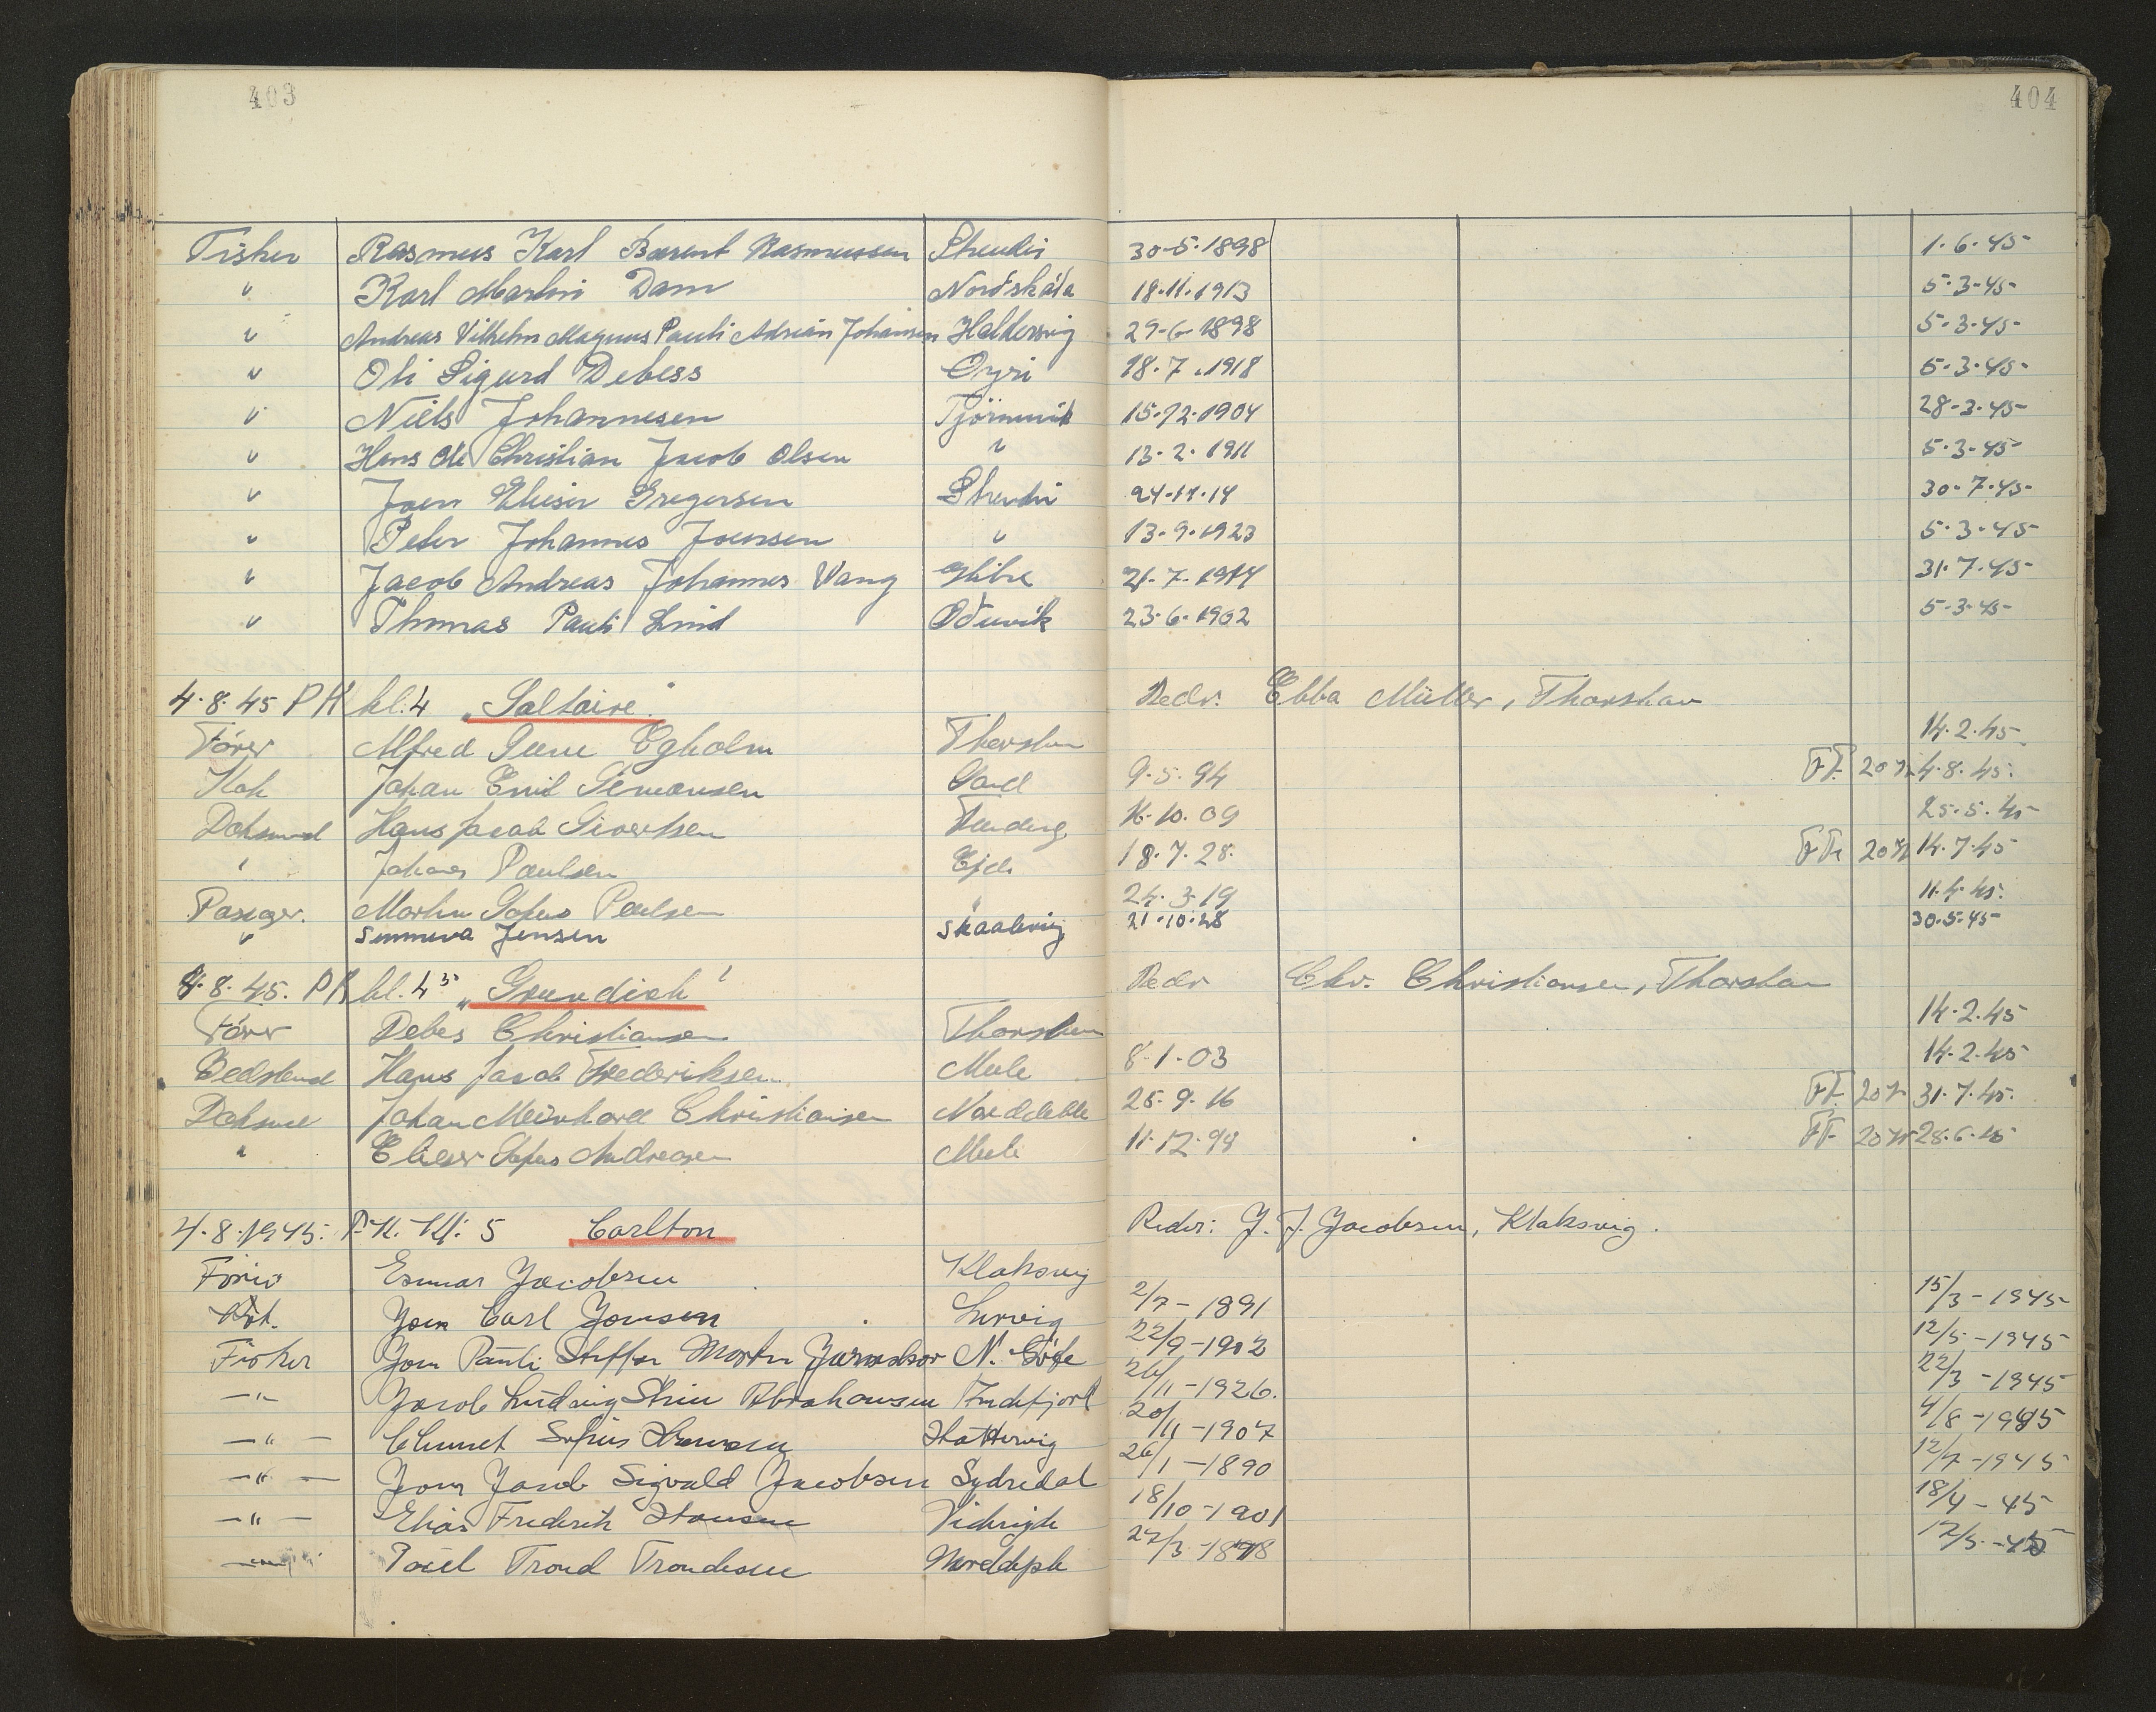 403
404
Fisker Rasmus Karl Barent Rasmussen Strendir 30-5-1898 1.6.45
" Karl Martin Dam Norðskála 18.11.1913 5.3.45
" Andreas Vilhelm Magnus Pauli Adrian Johansen Haldersvig 29-6-1898 5.3.45
" Oli Sigurd Debess Oyri 18.7.1918 5.3.45
" Niels Johannesen Tjörnuvik 15.12.1904 28.3.45
" Hans Ole Christian Jacob Olsen " 13.2.1911 5.3.45
" Joen Elieser Gregersen Strendir 24.11.14 30.7.45
" Peter Johannes Joensen " 13.9.1923 5.3.45
" Jacob Andreas Johannes Vang Glibre 21.7.1914 31.7.45
" Thomas Pauli Lind Oðnvík 23.6.1902 5.3.45
4.8.45 PK kl. 4 „Saltaire" Redr. Ebba Müller, Thorshavn
Förer Alfred Egholm Thorshavn 14.2.45
Kok Johan Emil Simonsen Sand 9.5.94 FF. 20 4.8.45
Doksmd Hans Jacob Sivertsen 16.10.09 25.5.45
" Johanes Poulsen Ejde 18.7.28 FF. 20 14.7.45
Passager. Martin Poulsen " 24.3.19 11.4.45
" Sunneva Jensen Skaalevig 21.10.28 30.5.45
4.8.45. PK kl. 4 „Grundick" Redr Chr. Christiansen, Thorshavn
Förer Debes Christiansen Thorshavn 14.2.45
Bedstmd Hans Jacob Frederiksen Mule 8-1-03 14.2.45
Doksmd Johan Meinhard Christiansen Norddeble 25-9-16 FF. 20 31.7.45
" Elieser Sofus Andreasen Mule 11.12.94 FF. 20 28.6.45
4.8.1945. P.K. Kl: 5 Carlton Reder: J. F. Jacobsen, Klaksvig.
Förer Esmar Jacobsen Klaksvig
Kok. Joen Carl Joensen Lervig 2/7-1891 15/3-1945
Fisker Joen Pauli Steffan Martin N. Göte 22/9-1902 12/5-1945
-"- Jacob Ludvig Abrahamsen Fundefjord 26/11-1926. 22/3-1945
-"- Clement Sofus Hansen Hattervig 20/11-1907 4/8-1945
-"- Joen Jacob Sigvald Jacobsen Sydredal 26/1-1890 12/7-1945
-"- Elias Frederik Hansen Videreide 18/10-1901 18/4-45
-"- Poul Trond Trondesen Norddepl 27/3-1898 12/5-45